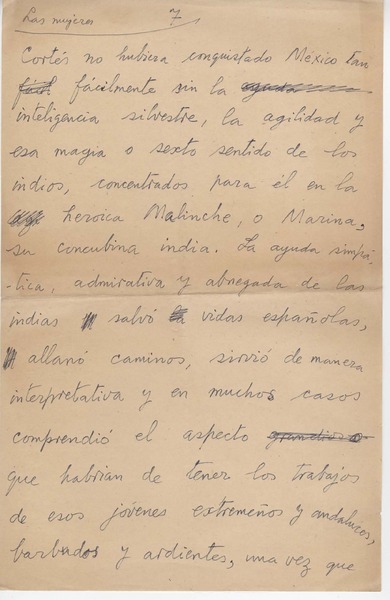 Las mujeres 7
Cortés no hubiera conquistado México tan
fácil fácilmente sin la ayuda
inteligencia silvestre, la agilidad y
esa magia o sexto sentido de los
indios, concentrados para él en la
heroica Malinche, o Marina,
su concubina india. La ayuda simpá-
-tica, admirativa y abnegada de las
indias salvó la vidas españolas,
allanó caminos, sirvió de manera
interpretativa y en muchos casos
comprendió el aspecto grandioso
que habrían de tener los trabajos
de esos jóvenes extremeños y andaluces,
barbudos y ardientes, una vez que